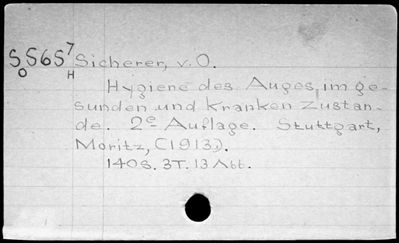 S S6S7 Sicherer, v. O.
O H
Hygiene des Auges im ge-
sunden und Kranken Zustan-
de. 2e Auflage. Stuttgart,
Moritz, (1913).
140S. 3T. 13 Abb.